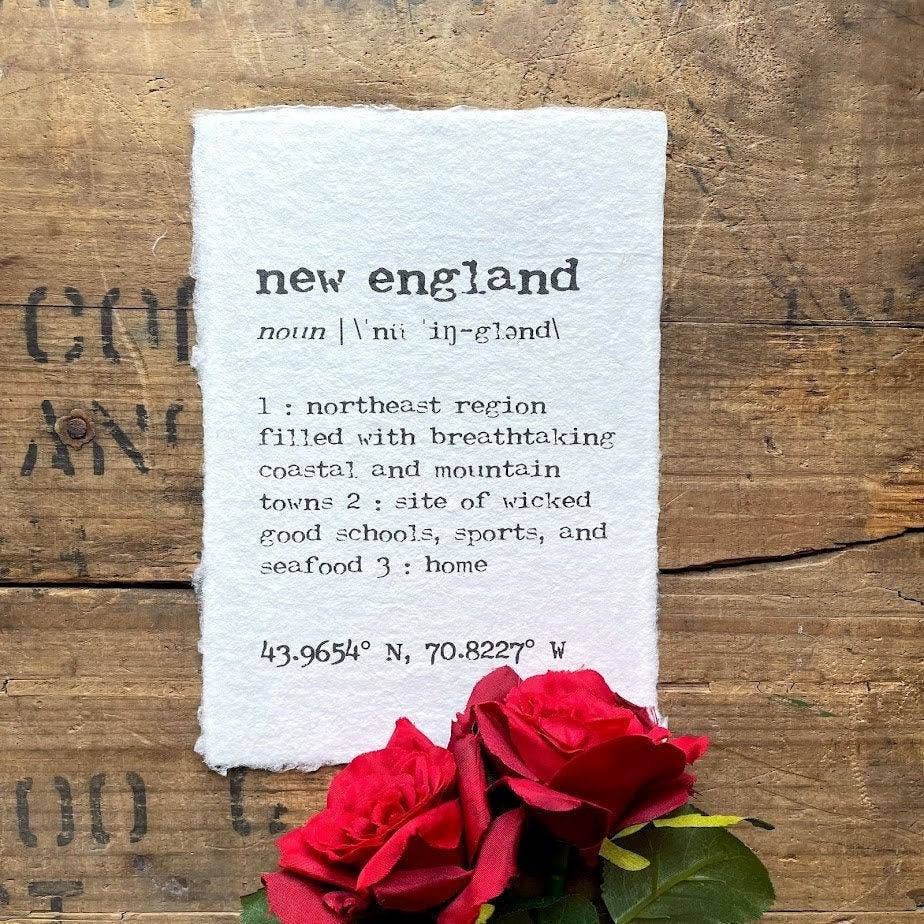 new england
noun | \ˈnü ˈiŋ-glənd\
1 : northeast region
filled with breathtaking
coastal and mountain
towns 2 : site of wicked
good schools, sports, and
seafood 3 : home
43.9654° N, 70.8227° W